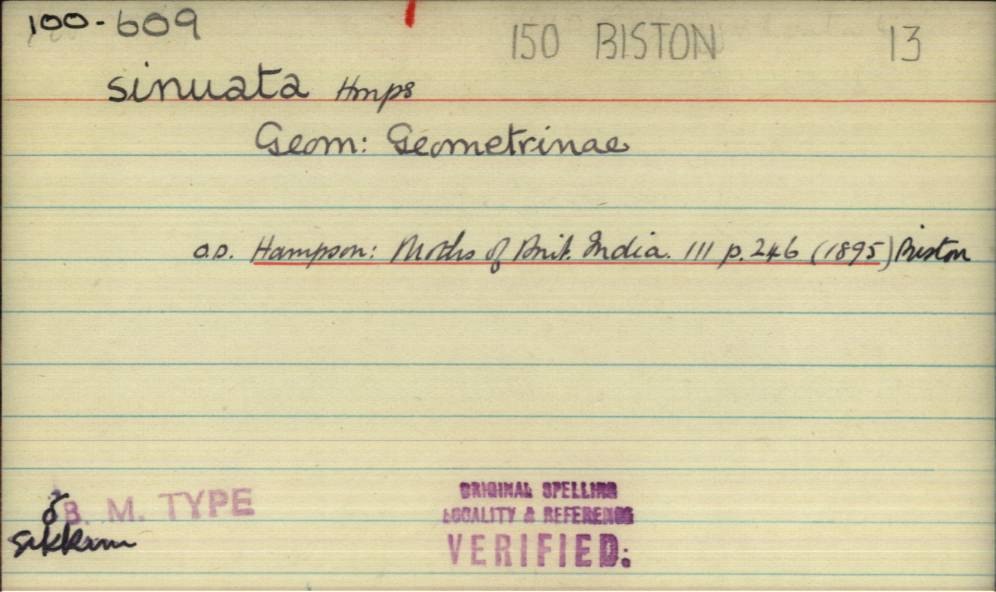 100-609 150 BISTON 13
sinuata Hmps
Geom: Geometrinae
o.D. Hampson: Moths of Brit. India. III p. 246 (1895) Biston
♂ B. M. TYPE
Sikkim
ORIGINAL SPELLING
LOCALITY & REFERENCE
VERIFIED: